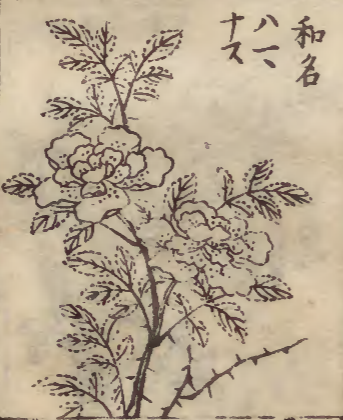 和名
ハマ
ナス